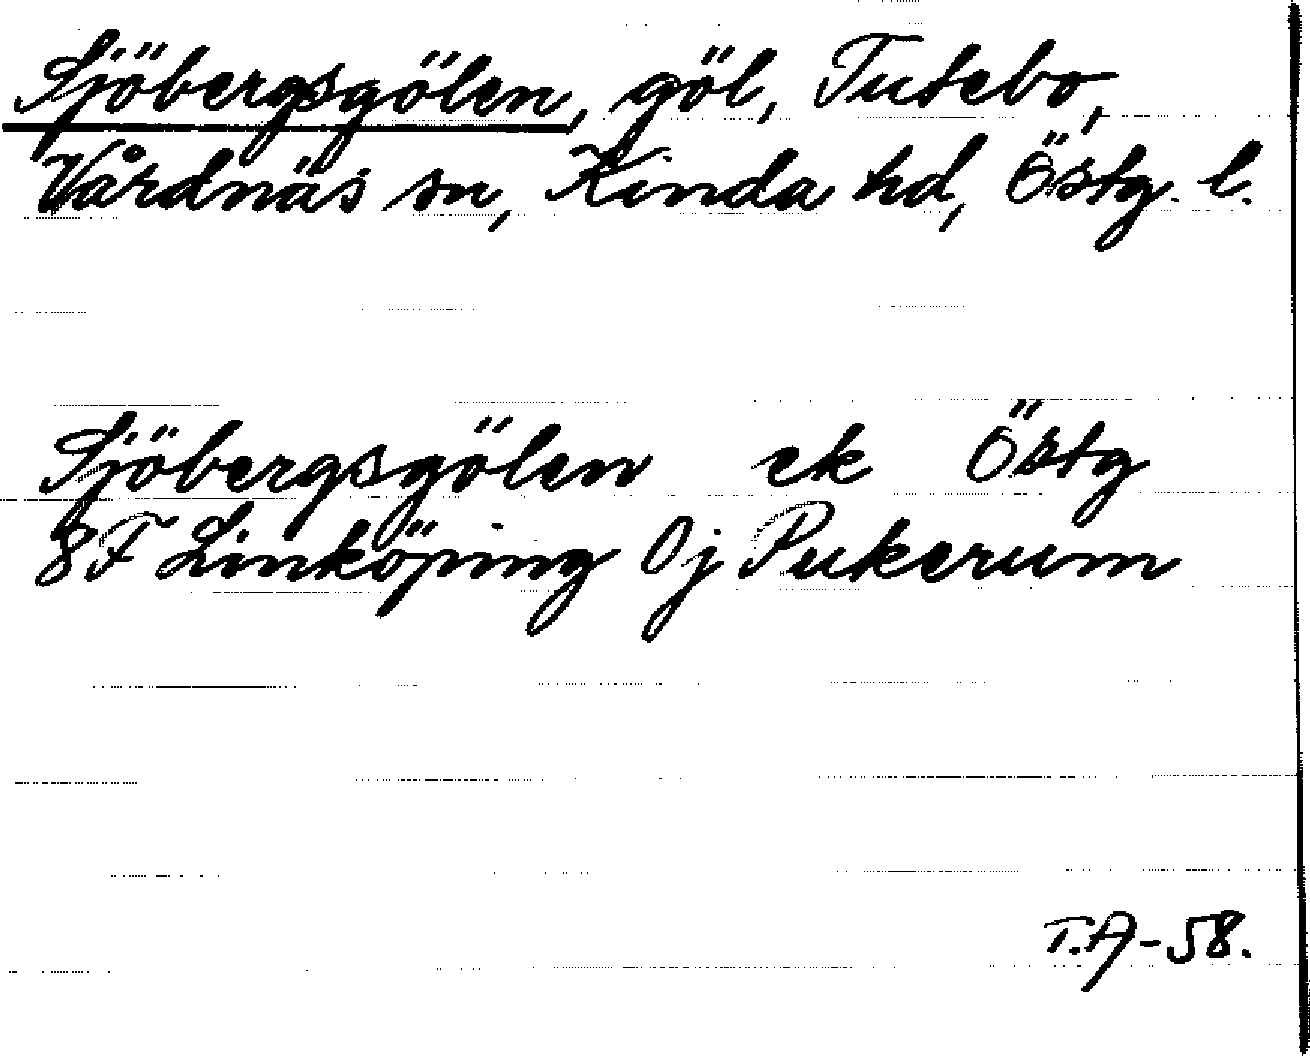 Sjöbergsgölen, göl, Tutebo,
Vårdnäs sn, Kinda hd, Östg. l.
Sjöbergsgölen ek Östg
8F Linköping Oj Pukerum
T.A-58.